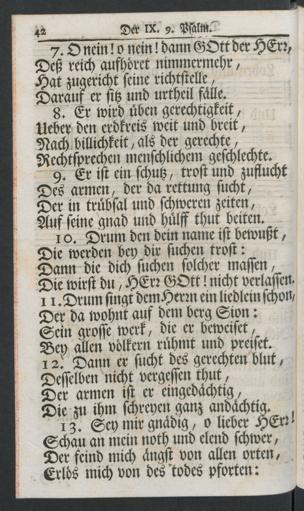 42 Der IX. 9. Psalm.
7. O nein! o nein! dann GOtt der HErr,
Deß reich aufhöret nimmermehr,
Hat zugericht seine richtstelle,
Darauf er sitz und urtheil fälle.
8. Er wird üben gerechtigkeit,
Ueber den erdkreis weit und breit,
Nach billichkeit, als der gerechte,
Rechtsprechen menschlichem geschlechte.
9. Er ist ein schutz, trost und zuflucht
Des armen, der da rettung sucht,
Der in trübsal und schweren zeiten,
Auf seine gnad und hülff thut beiten.
10. Drum den dein name ist bewußt,
Die werden bey dir suchen trost:
Dann die dich suchen solcher massen,
Die wirst du, HErr GOtt! nicht verlassen.
11. Drum singt dem Herrn ein liedlein schon,
Der da wohnt auf dem berg Sion:
Sein grosse werk, die er beweiset,
Bey allen völkern rühmt und preiset.
12. Dann er sucht des gerechten blut,
Desselben nicht vergessen thut,
Der armen ist er eingedächtig,
Die zu ihm schreyen ganz andächtig.
13. Sey mir gnädig, o lieber HErr!
Schau an mein noth und elend schwer,
Der feind mich ängst von allen orten,
Erlös mich von des todes pforten: